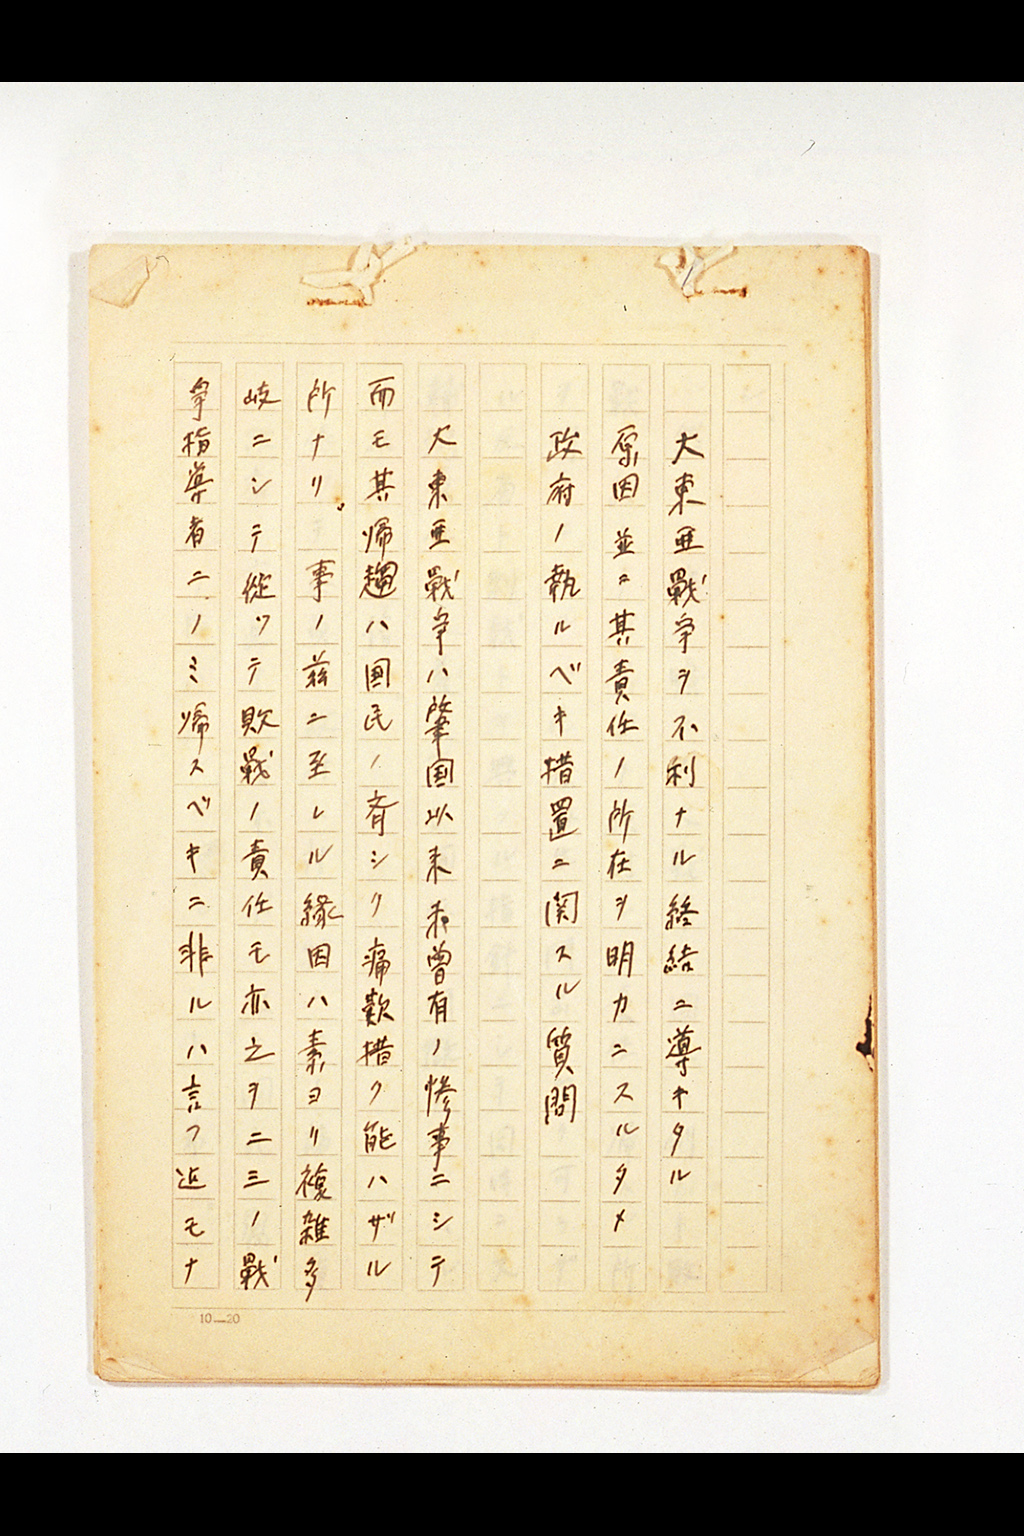 大東亜戦争ヲ不利ナル終結ニ導キタル
原因並ニ其責任ノ所在ヲ明カニスルタメ
政府ノ執ルベキ措置ニ関スル質問
大東亜戦争ハ肇国以来未曽有ノ惨事ニシテ
而モ其帰趨ハ国民ノ斉シク痛歎措ク能ハザル
所ナリ。事ノ茲ニ至レル縁因ハ素ヨリ複雑多
岐ニシテ從ツテ敗戦ノ責任モ亦之ヲ二三ノ戦
争指導者ニノミ帰スベキニ非ルハ言フ迄モナ
10—20